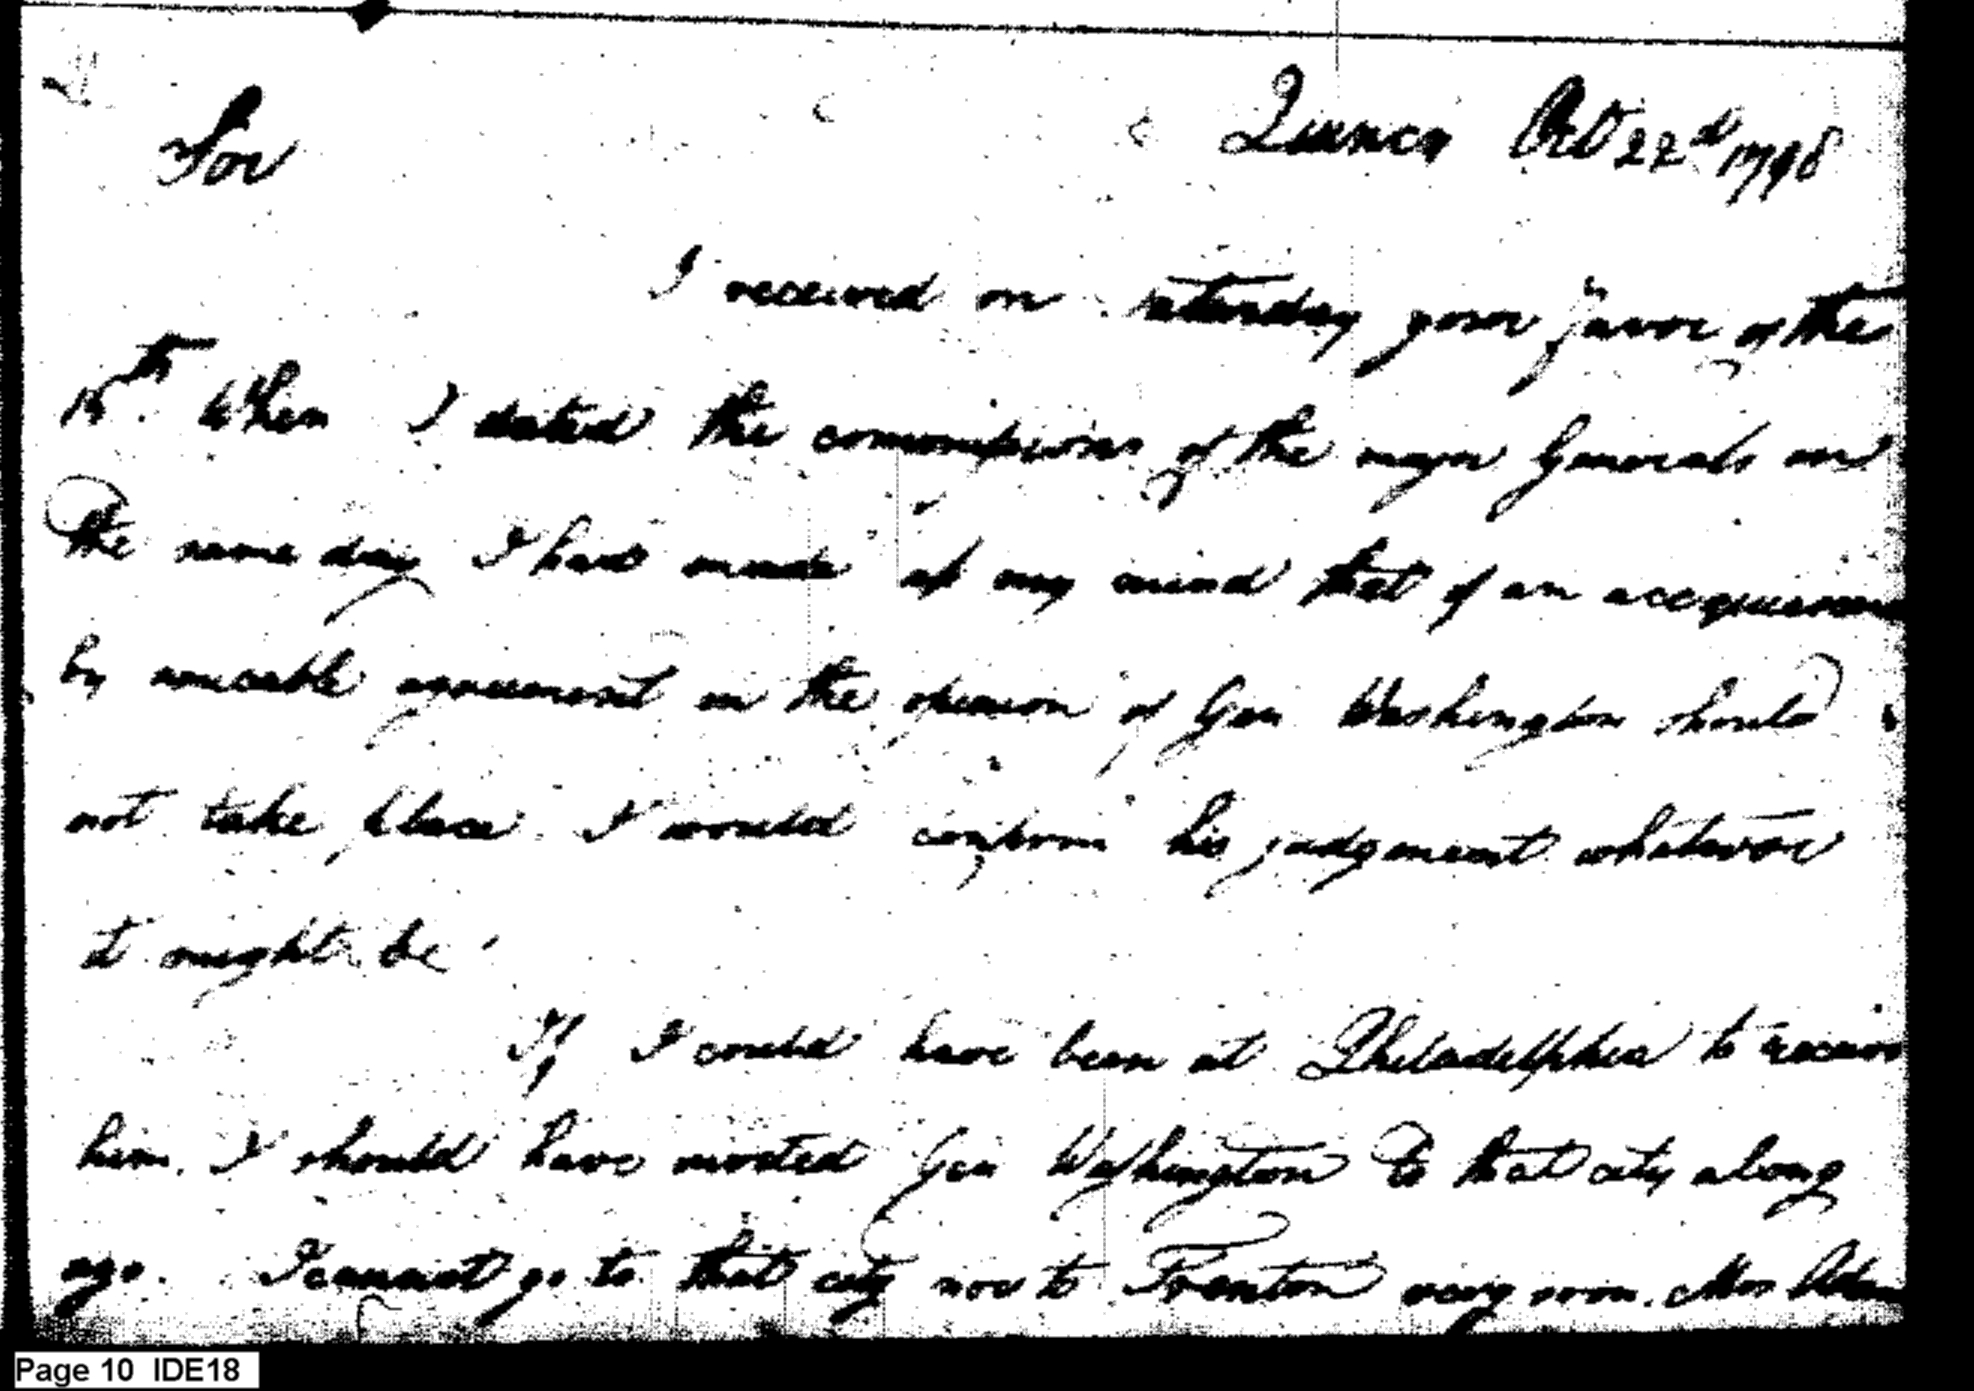 Sir
Quincy Oct 22d 1798
I received on Saturday your favor of the
15th. When I dated the commissions of the major Generals on
the same day I had made up my mind that if an
by amicable agreement on the opinion of Gen Washington should
not take place I would confirm his judgment whatever
it might be
If I could have been at Philadelphia to receive
him. I should have invited Gen Washington to that city along
ago. I cannot go to that city nor to Trenton very soon. Mrs Adam
Page 10 IDE18